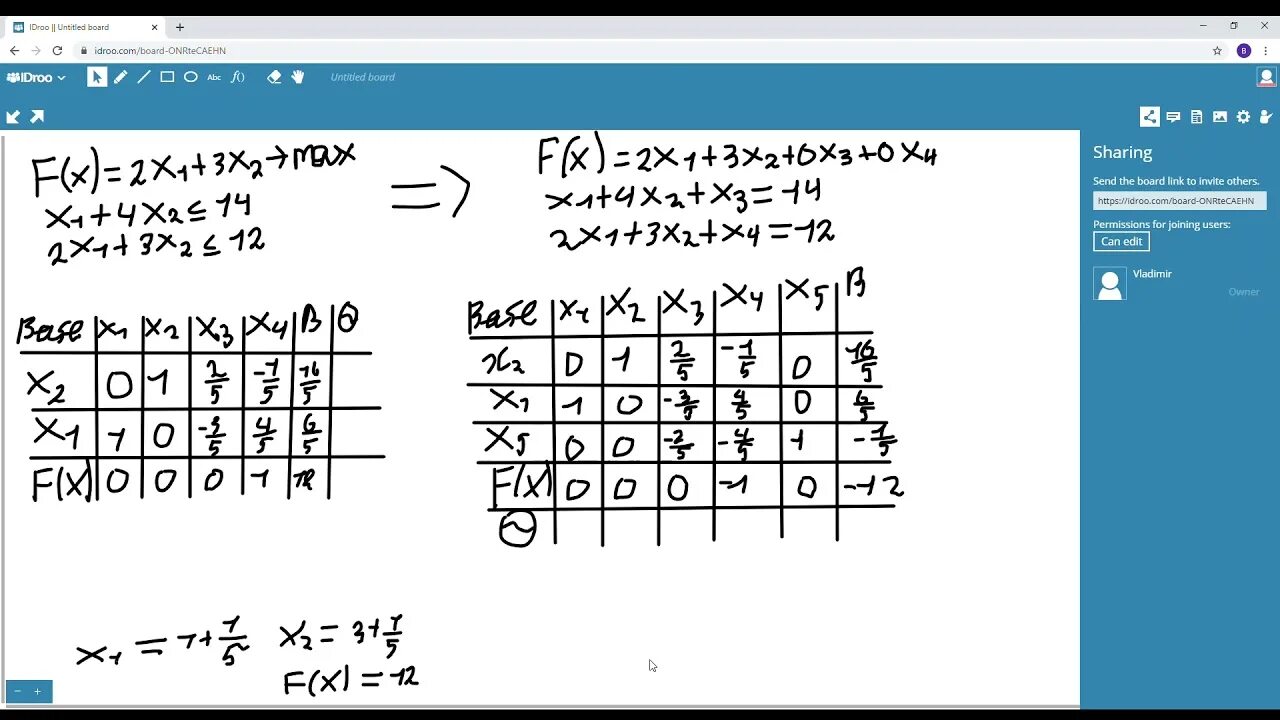 IDroo || Untitled board
idroo.com/board-ONRteCAEHN
B
IDroo
Abc
f()
Untitled board
F(x)=2x1+3x2→max
x1+4x2≤14
2x1+3x2≤12
=>
F(x)=2x1+3x2+0x3+0x4
x1+4x2+x3=14
2x1+3x2+x4=12
Base x1 x2 x3 x4 B Θ
x2 0 1 2/5 -1/5 16/5
x1 1 0 -3/5 4/5 6/5
F(x) 0 0 0 -1 12
Base x1 x2 x3 x4 x5 B
x2 0 1 2/5 -1/5 0 16/5
x1 1 0 -3/5 4/5 0 6/5
x5 0 0 -2/5 -4/5 1 -1/5
F(x) 0 0 0 -1 0 -12
Θ
x1=1+1/5 x2=3+1/5
F(x)=12
Sharing
Send the board link to invite others.
https://idroo.com/board-ONRteCAEHN
Permissions for joining users:
Can edit
Vladimir
Owner